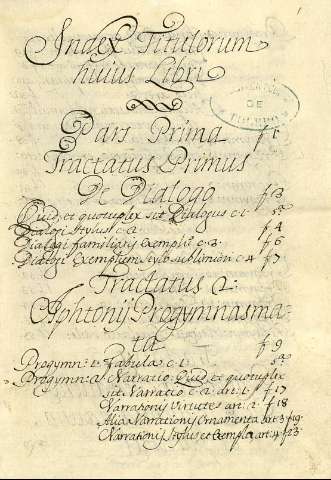 Index Titulorum
huius Libri
Pars Prima f 1
Tractatus Primus
De Dialogo
Quid, et quotuplex sit Dialogus c. 1. f 3
Dialogi Stylus c. 2. f 4
Dialogi familiaris exemplu c. 3. f 6
Dialogi Exemplum stylo sublimiori c. 4 f 7
Tractatus 2.
Aphtonij Progymnasma-
ta. f 9
Progymn: 1. Fabula c. 1.
Progymn: 2. Narratio. Quid, et quotuplex
sit Narratio c. 2. art: 1. f 17
Narrationis Virtutes art: 2. f 18
Alia Narrationis Ornamenta art: 3 f 19
Narrationis Stylus et Exempla art: 4 f 23